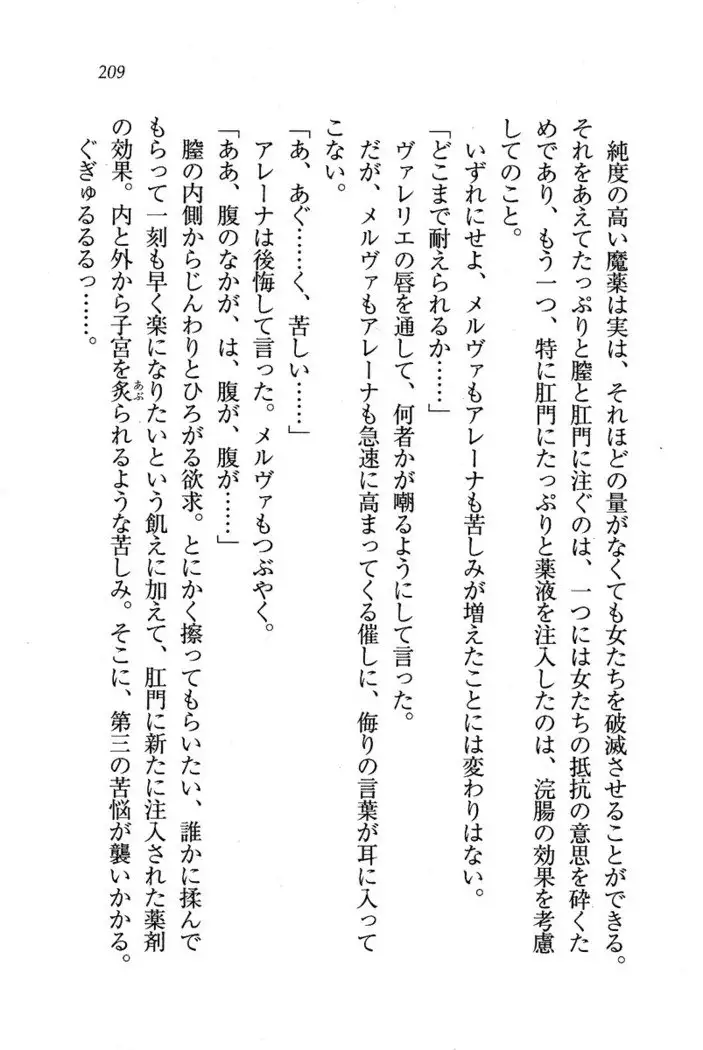 209
純度の高い魔薬は実は、それほどの量がなくても女たちを破滅させることができる。
それをあえてたっぷりと膣と肛門に注ぐのは、一つには女たちの抵抗の意思を砕くた
めであり、もう一つ、特に肛門にたっぷりと薬液を注入したのは、浣腸の効果を考慮
してのこと。
いずれにせよ、メルヴァもアレーナも苦しみが増えたことには変わりはない。
「どこまで耐えられるか……」
ヴァレリエの唇を通して、何者かが嘲るようにして言った。
だが、メルヴァもアレーナも急速に高まってくる催しに、侮りの言葉が耳に入って
こない。
「あ、あぐ……く、苦しい……」
アレーナは後悔して言った。メルヴァもつぶやく。
「ああ、腹のなかが、は、腹が、腹が……」
膣の内側からじんわりとひろがる欲求。とにかく擦ってもらいたい、誰かに揉んで
もらって一刻も早く楽になりたいという飢えに加えて、肛門に新たに注入された薬剤
の効果。内と外から子宮を炙られるような苦しみ。そこに、第三の苦悩が襲いかかる。
あぶ
ぐぎゅるるるっ……。